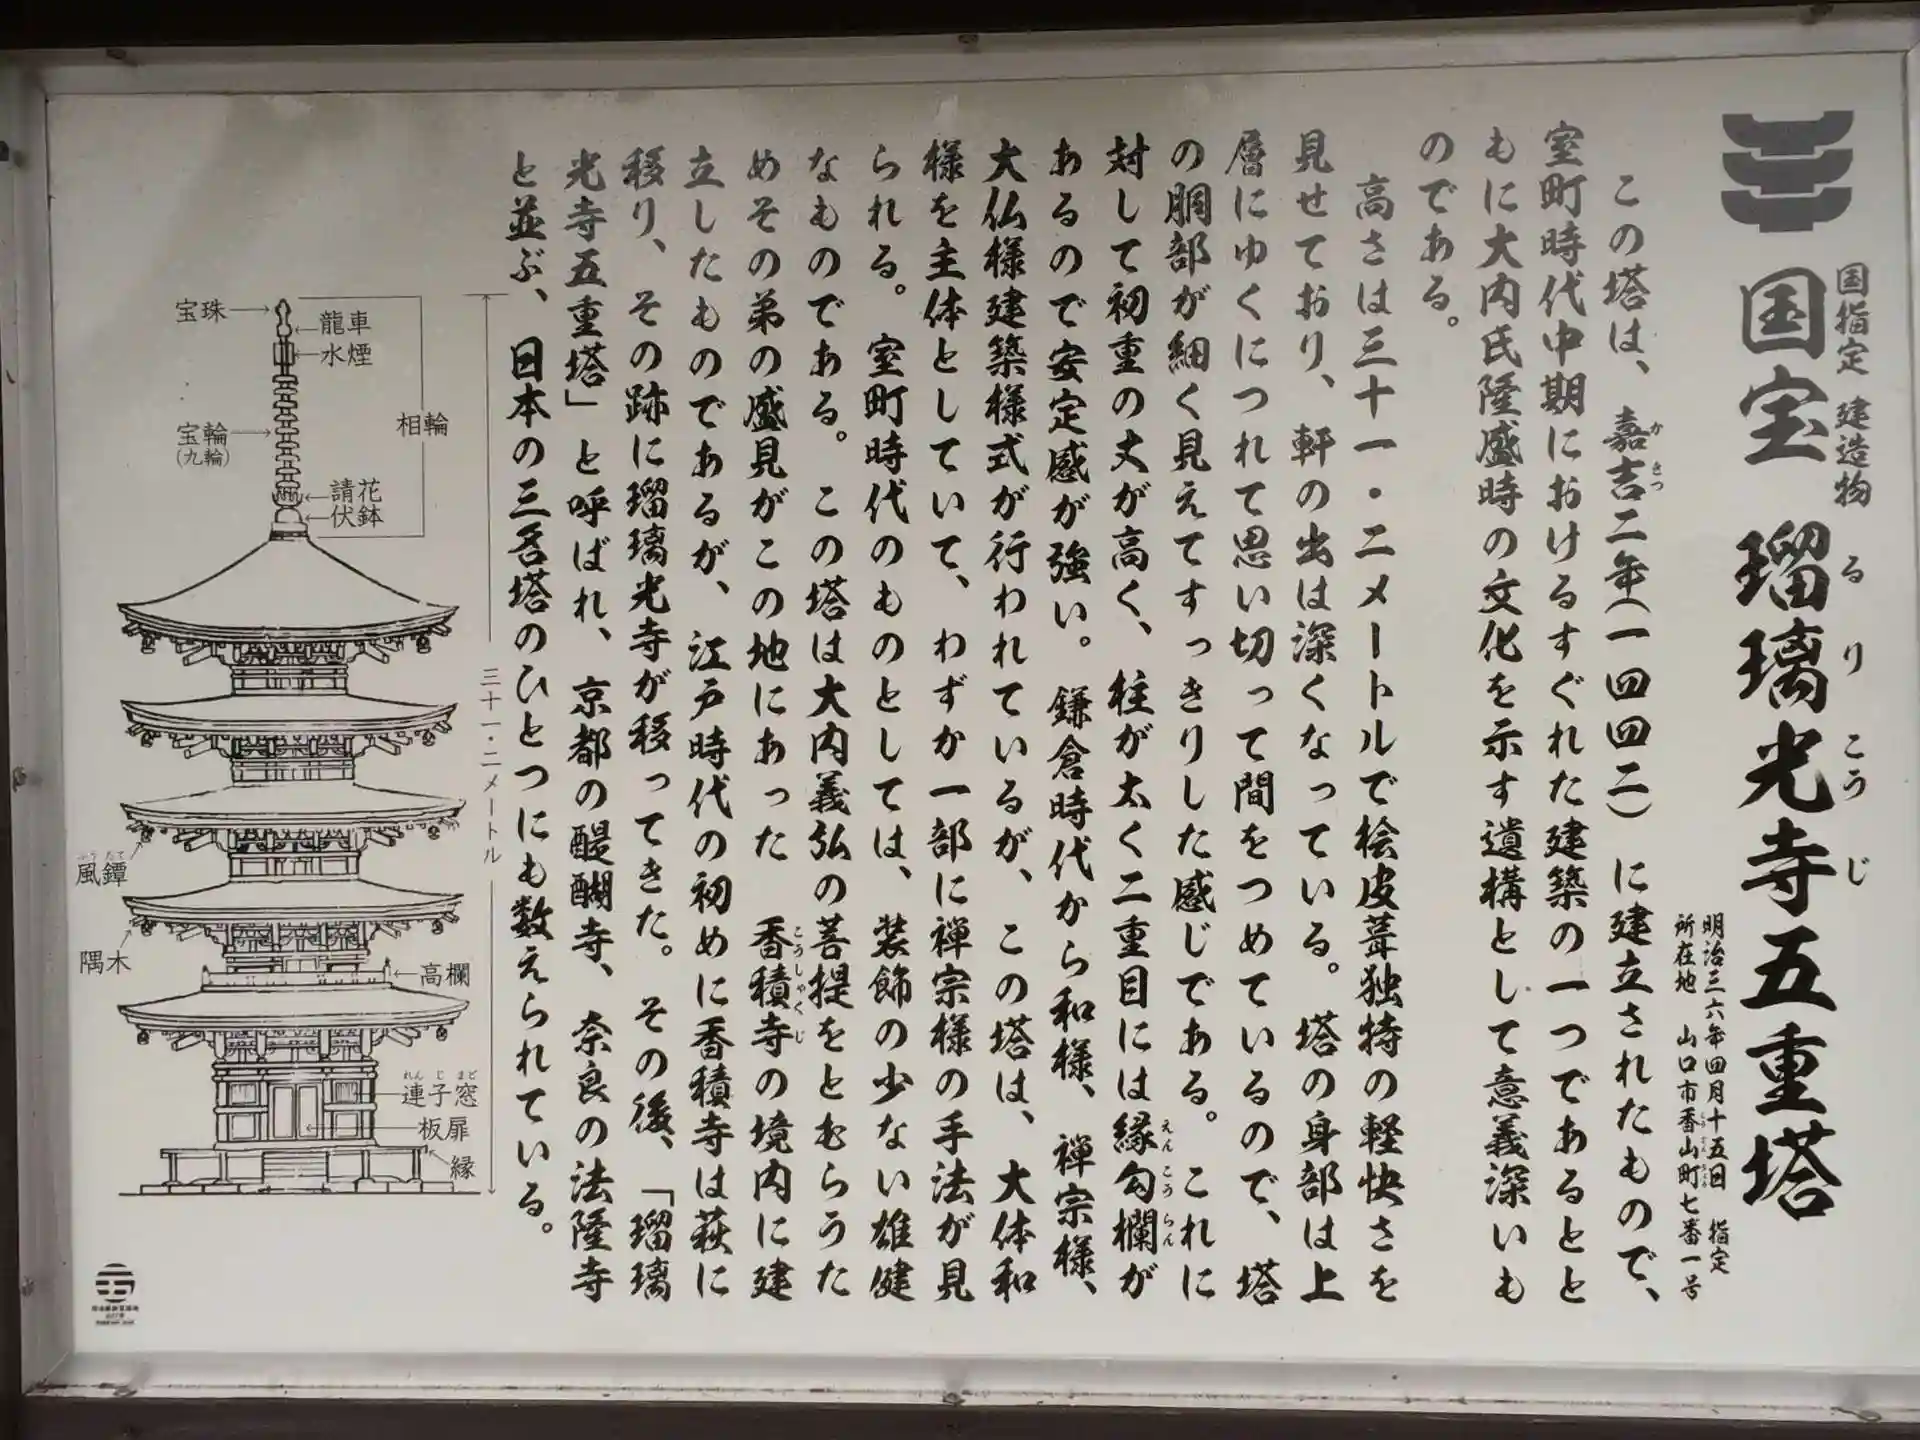 国指定 建造物
国宝 瑠璃光寺五重塔
る り こう じ
明治三六年四月十五日 指定
所在地 山口市香山町七番一号
この塔は、嘉吉二年(一四四二)に建立されたもので、
か きつ
室町時代中期におけるすぐれた建築の一つであるとと
もに大内氏隆盛時の文化を示す遺構として意義深いも
のである。
高さは三十一・二メートルで桧皮葺独特の軽快さを
見せており、軒の出は深くなっている。塔の身部は上
層にゆくにつれて思い切って間をつめているので、塔
の胴部が細く見えてすっきりした感じである。これに
対して初重の丈が高く、柱が太く二重目には縁勾欄が
えん こう らん
あるので安定感が強い。鎌倉時代から和様、禅宗様、
大仏様建築様式が行われているが、この塔は、大体和
様を主体としていて、わずか一部に禅宗様の手法が見
られる。室町時代のものとしては、装飾の少ない雄健
なものである。この塔は大内義弘の菩提をとむらうた
めその弟の盛見がこの地にあった 香積寺の境内に建
こうしゃくじ
立したものであるが、江戸時代の初めに香積寺は萩に
移り、その跡に瑠璃光寺が移ってきた。その後、「瑠璃
光寺五重塔」と呼ばれ、京都の醍醐寺、奈良の法隆寺
と並ぶ、日本の三名塔のひとつにも数えられている。
三十一・二メートル
宝珠
龍車
水煙
相輪
宝輪
(九輪)
請花
伏鉢
風鐸
隅木
高欄
れん じ まど
連子窓
板扉
縁